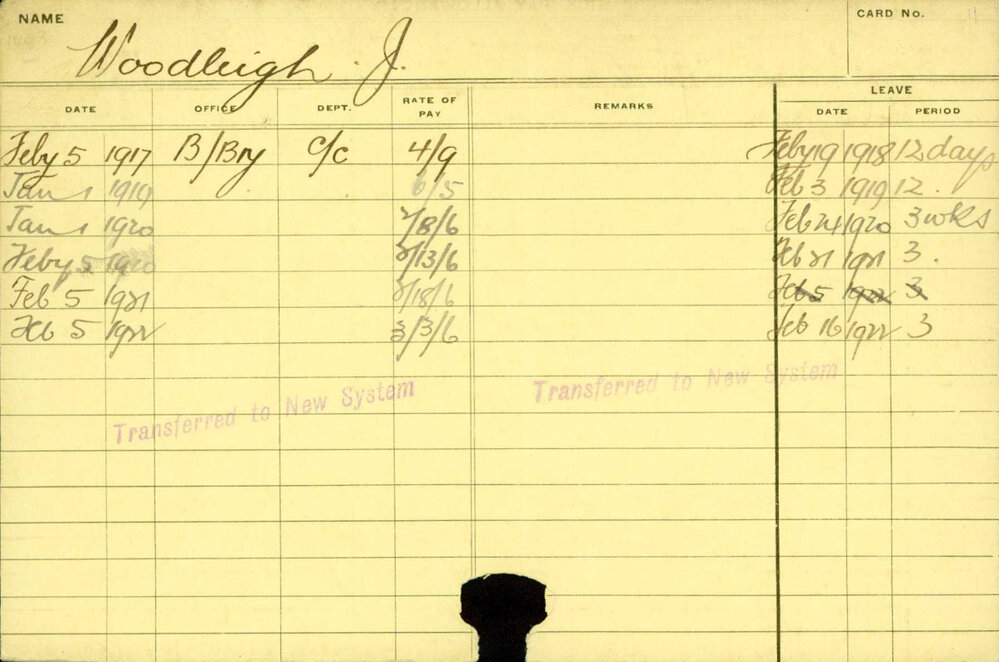 NAME
CARD No.
Woodleigh. J.
DATE OFFICE DEPT. RATE OF PAY REMARKS LEAVE DATE PERIOD
Feby 5 1917 B/Bry C/C 4/9 Feby 19 1918 12 days
Jan 1 1919 6/5 Feb 3 1919 12.
Jan 1 1920 /8/6 Feb 24 1920 3 wks
Feby 5 1920 /13/6 Feb 21 1921 3.
Feb 5 1921 /18/6 Feb 5 1922 3
Feb 5 1922 3/3/6 Feb 16 1922 3
Transferred to New System Transferred to New System